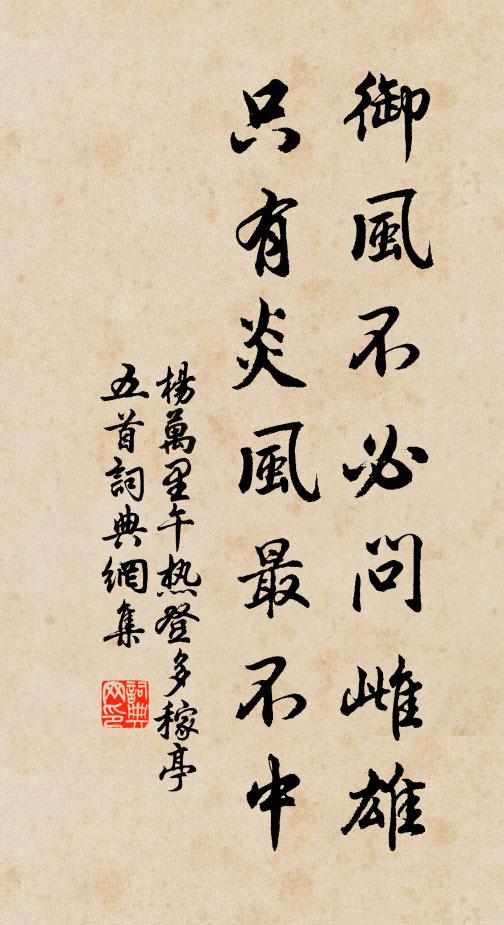 御風不必問雌雄
只有炎風最不中
楊萬里午热登多稼亭
五首詞典網集
詞典网印